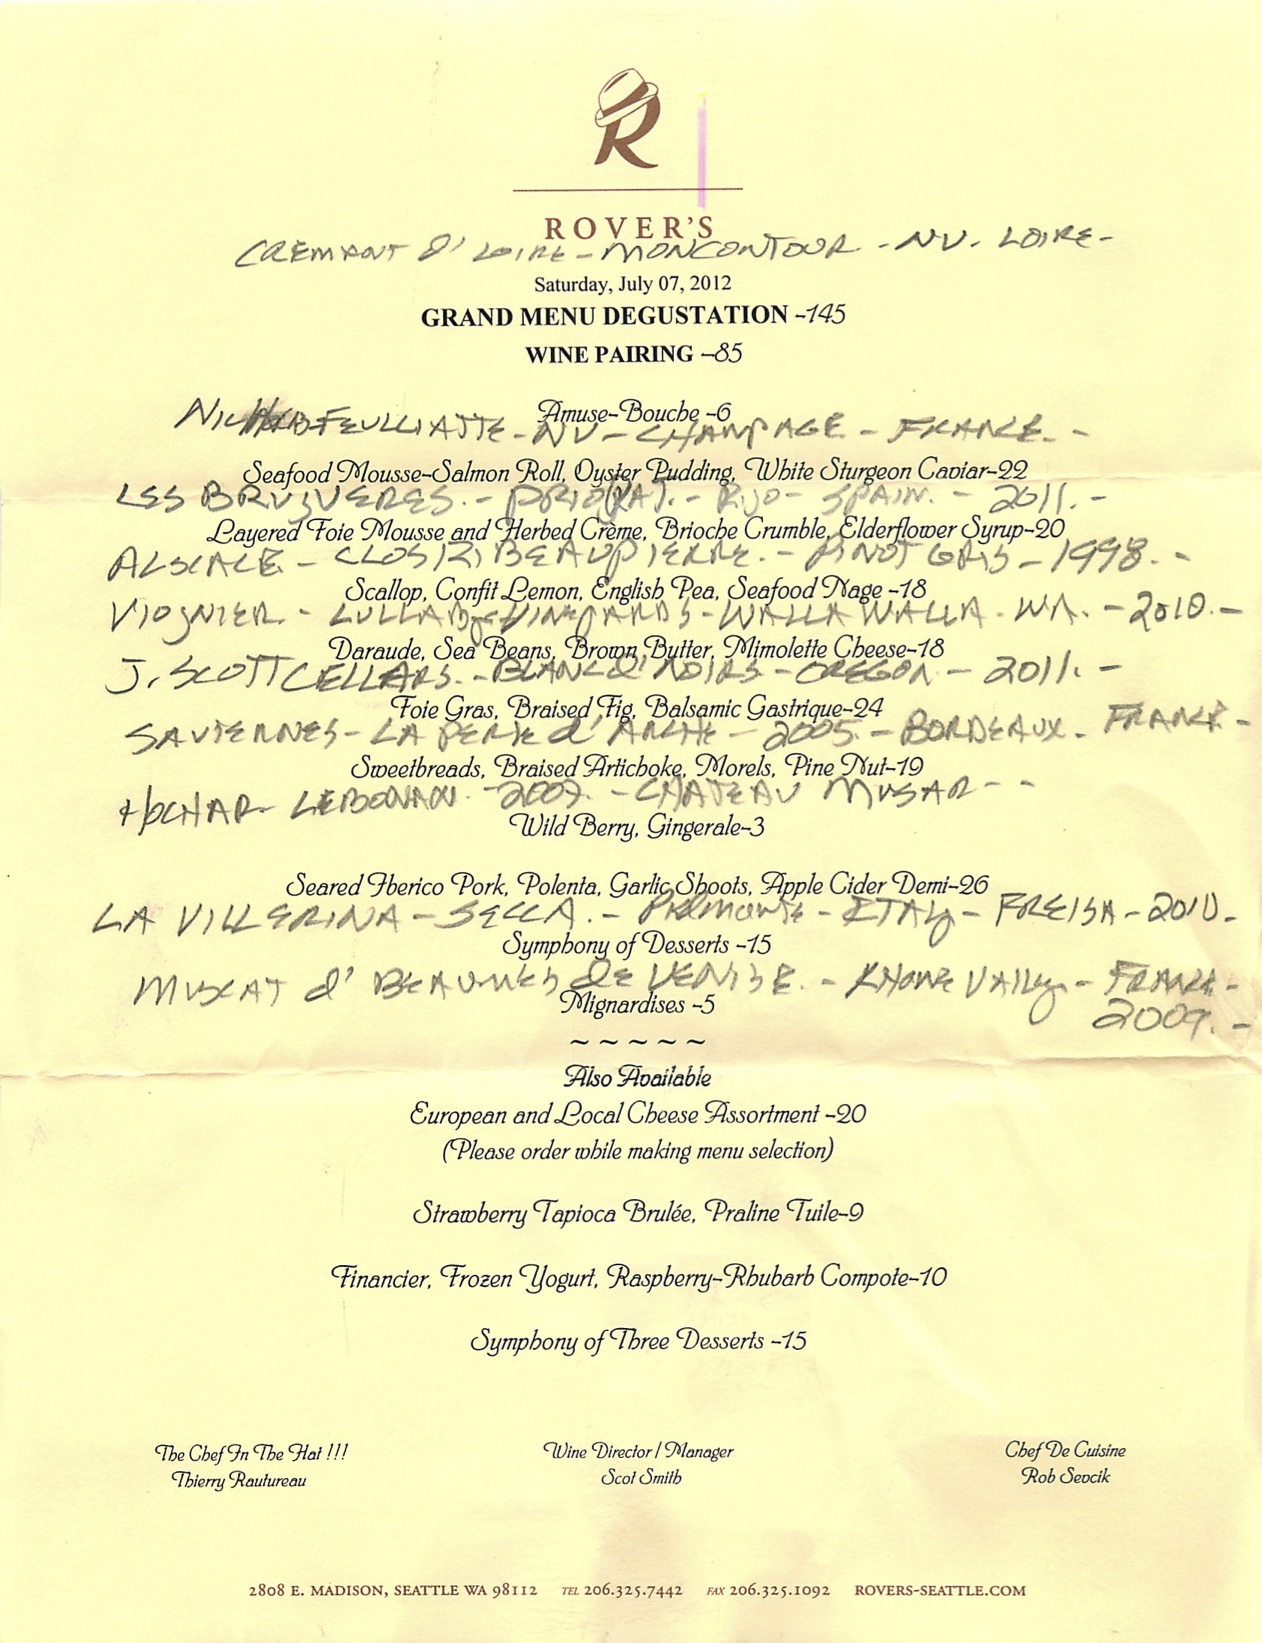 R
ROVER'S
CREMANT D' LOIRE - MONCONTOUR - NV. LOIRE -
Saturday, July 07, 2012
GRAND MENU DEGUSTATION -145
WINE PAIRING -85
Amuse-Bouche -6
FEUILLIATTE - NV - CHAMPAGE - FRANCE. -
Seafood Mousse-Salmon Roll, Oyster Pudding, White Sturgeon Caviar-22
LES BRUYUERES. - PRIORAT. - - SPAIN. - 2011. -
Layered Foie Mousse and Herbed Crème, Brioche Crumble, Elderflower Syrup-20
ALSCACE - CLOS BEAUPIERRE. - PINOT GRIS - 1998. -
Scallop, Confit Lemon, English Pea, Seafood Nage -18
VIOGNIER. - LULLABY VINEYARDS - WALLA WALLA. WA. - 2010. -
Daraude, Sea Beans, Brown Butter, Mimolette Cheese-18
J. SCOTT CELLARS. - BLANC d' NOIRS - OREGON - 2011. -
Foie Gras, Braised Fig, Balsamic Gastrique-24
SAVIERNNES - LA PERLE d' ARCHE - 2005. - BORDEAUX. FRANCE -
Sweetbreads, Braised Artichoke, Morels, Pine Nut-19
HOCHAR - LEBONAON. - 2007. - CHATEAU MUSAR - -
Wild Berry, Gingerale-3
Seared Iberico Pork, Polenta, Garlic Shoots, Apple Cider Demi-26
LA VILLERINA - SECCA. - PIEMONTE - ITALY - FREISA - 2010. -
Symphony of Desserts -15
MUSCAT d' BEAUMES de VENISE. - RHONE VALLEY - FRANCE -
Mignardises -5
2009. -
~ ~ ~ ~ ~
Also Available
European and Local Cheese Assortment -20
(Please order while making menu selection)
Strawberry Tapioca Brulée, Praline Tuile-9
Financier, Frozen Yogurt, Raspberry-Rhubarb Compote-10
Symphony of Three Desserts -15
The Chef In The Hat !!! Wine Director / Manager Chef De Cuisine
Thierry Rautureau Scot Smith Rob Sevcik
2808 E. MADISON, SEATTLE WA 98112 TEL 206.325.7442 FAX 206.325.1092 ROVERS-SEATTLE.COM